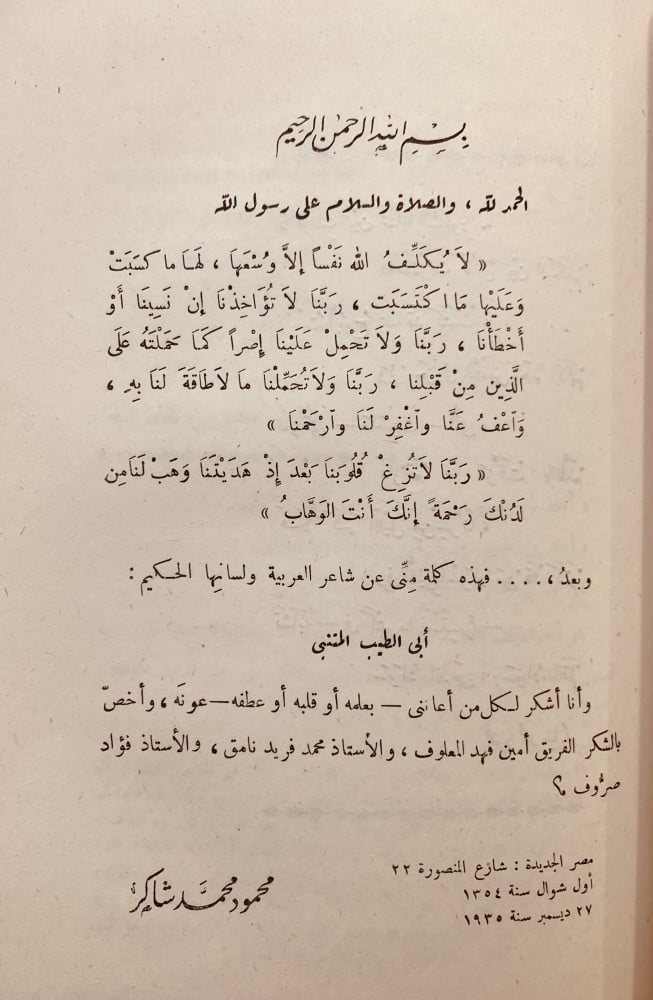 بِسْمِ اللهِ الرحمٰنِ الرحيمِ
الحمد لله ، والصلاة والسلام على رسول الله
« لاَ يُكَلِّفُ الله نَفْساً إلاَّ وُسْعَهَا ، لَهَا ما كَسَبَتْ
وَعَلَيْها مَا اكْتَسَبَت ، رَبَّنَا لاَ تُؤَاخِذْنَا إنْ نَسِينَا أَوْ
أَخْطَأْنَا ، رَبَّنَا وَلاَ تَحْمِلْ عَلَيْنَا إصْراً كَمَا حَمَلْتَهُ عَلَى
الَّذِين مِنْ قَبْلِنا ، رَبَّنَا وَلاَ تُحَمِّلْنَا مَا لاَطَاقَةَ لَنَا بِهِ ،
وَٱعْفُ عَنَّا وٱغْفِرْ لَنَا وٱرْحَمْنَا »
« رَبَّنَا لاَتُزِغْ قُلُوبَنَا بَعْدَ إذْ هَدَيْتَنَا وَهَبْ لَنَامِن
لَدُنْكَ رَحْمَةً إنَّكَ أَنْتَ الوَهَّابُ »
وبعدُ ، .... فهذه كلمة مِنِّى عن شاعر العربية ولسانِها الحكيم :
أبى الطيب المتنبى
وأنا أشكر لكل من أعاننى — بعلمه أو قلبه أو عطفه — عونَه ، وأخصّ
بالشكر الفريق أمين فهد المعلوف ، والأستاذ محمد فريد نامق ، والأستاذ فؤاد
صرُّوف ؟
مصر الجديدة : شارع المنصورة ٢٢
أول شوال سنة ١٣٥٤
٢٧ ديسمبر سنة ١٩٣٥
محمود محمَّد شاكر